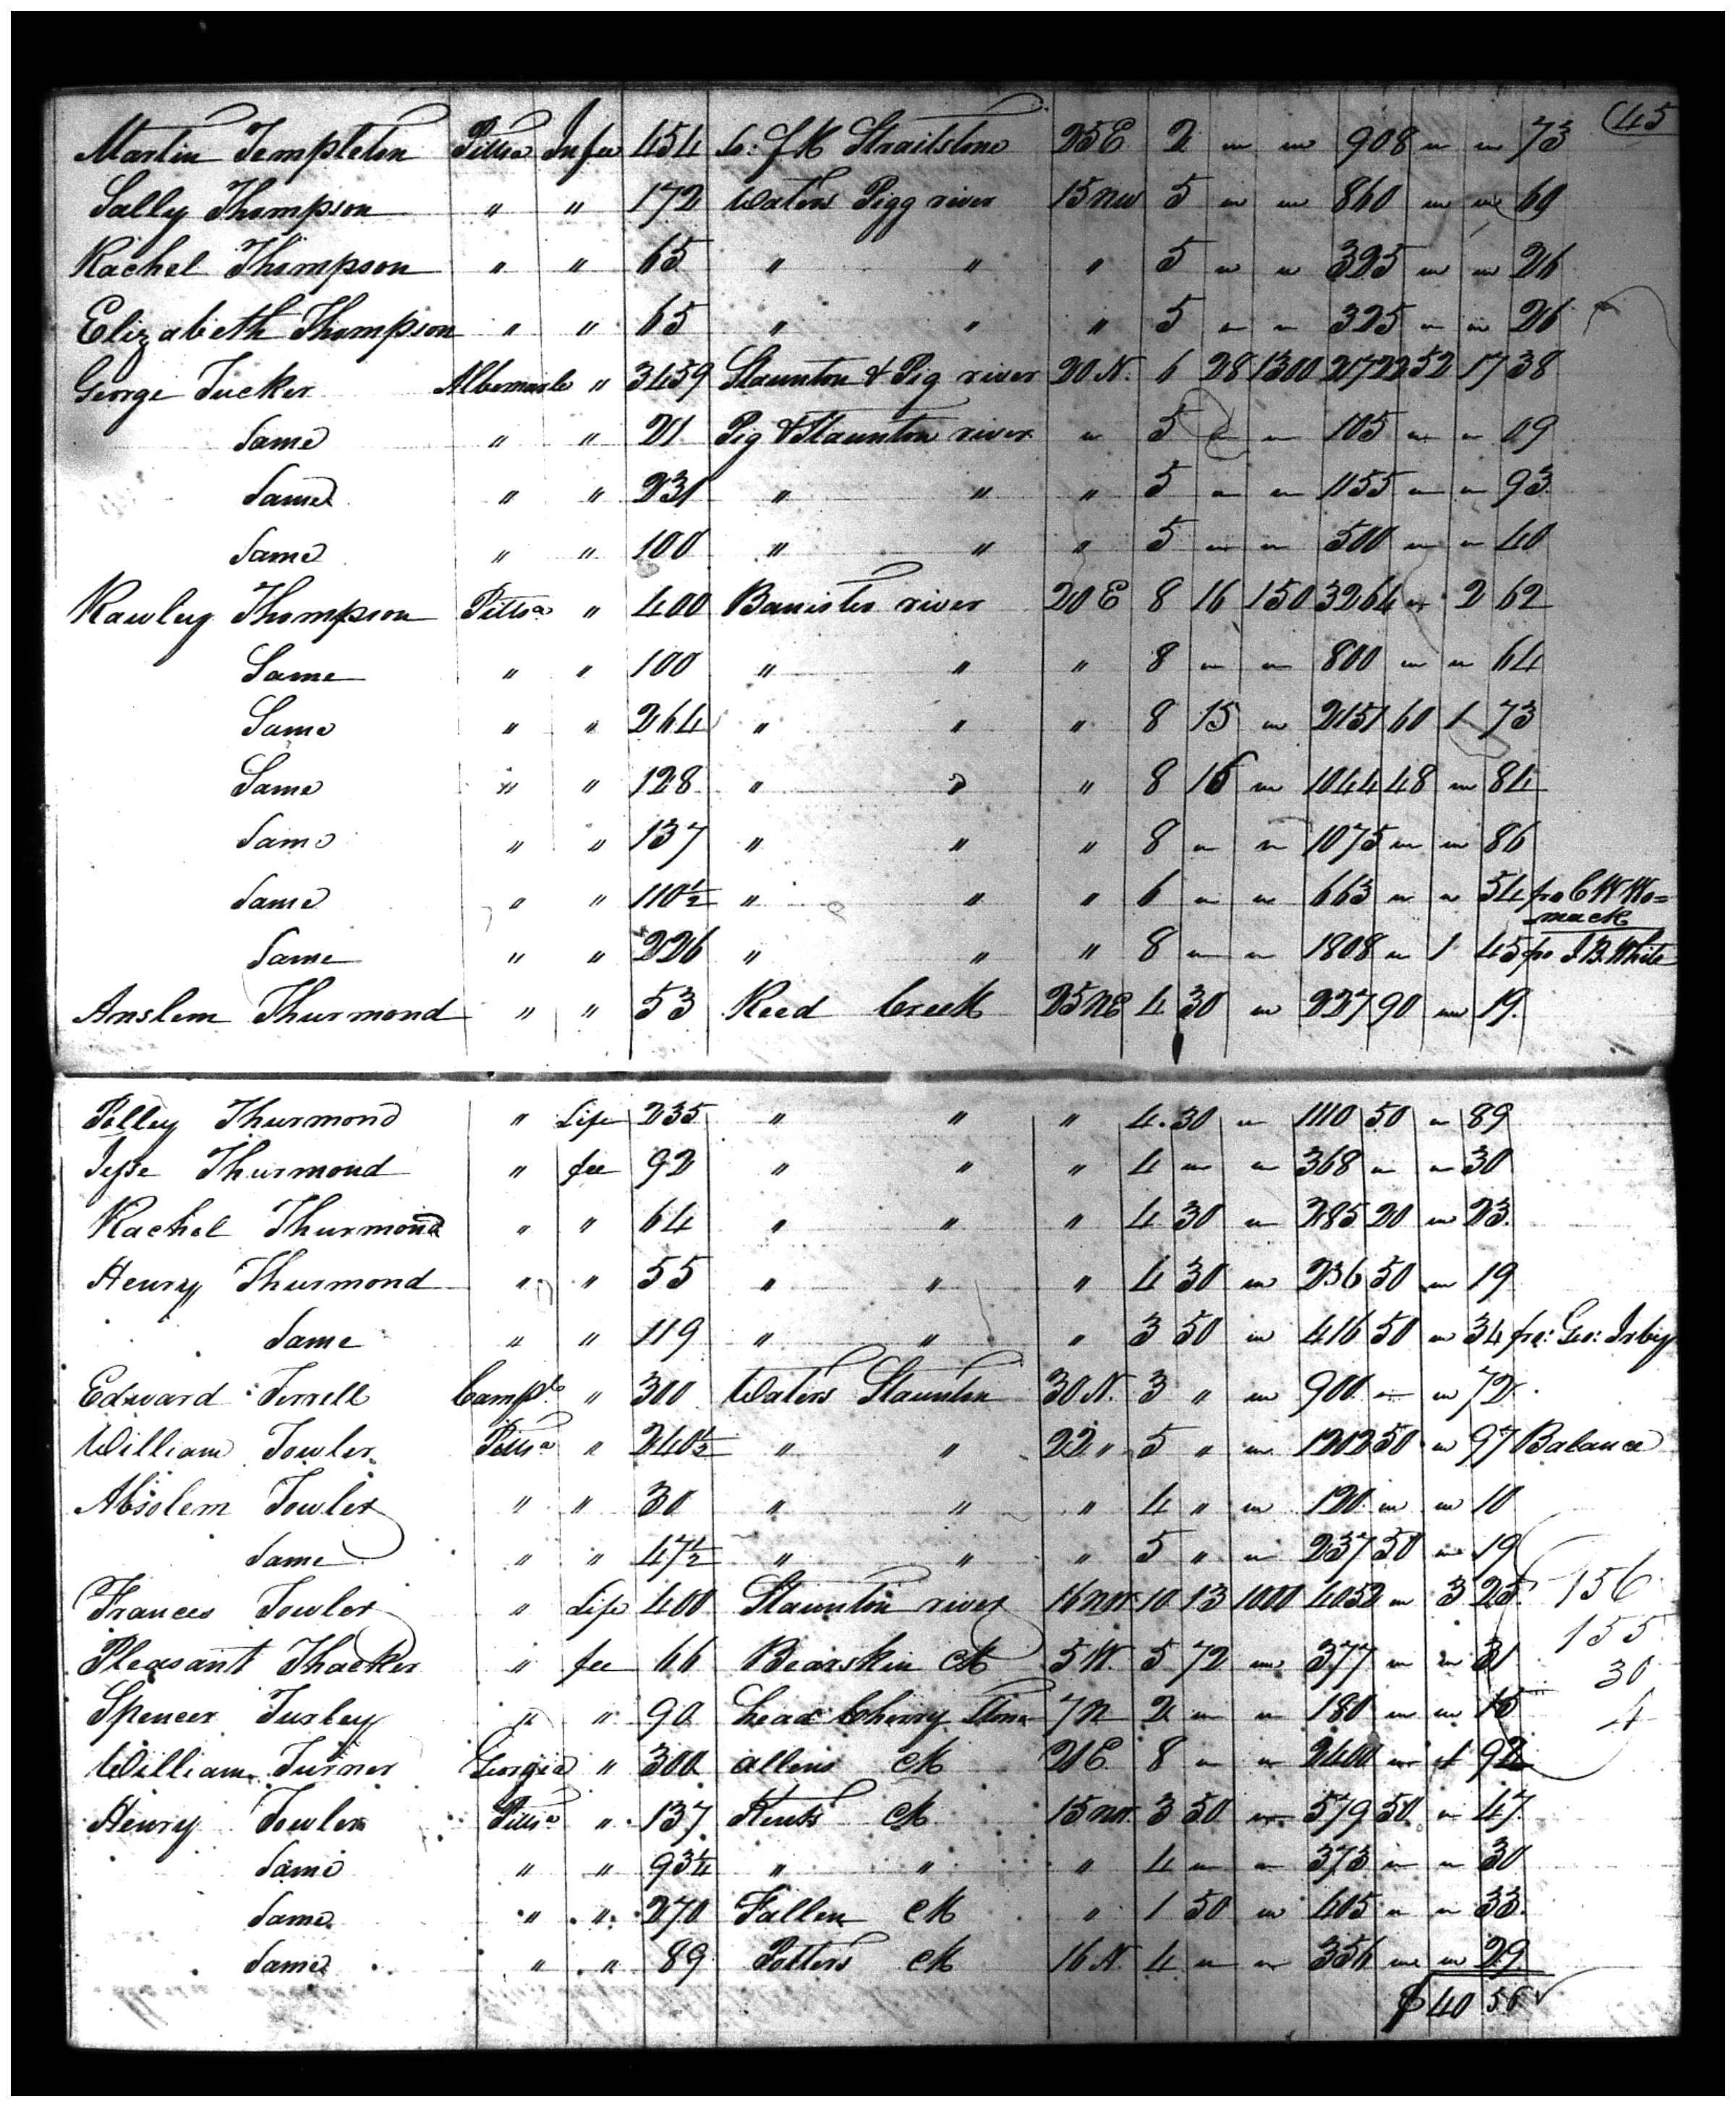 (45
Martin Templeton Pittsa In fee 454 So: fk Straitstone 25 E 2 " " 908 " " 73
Sally Thompson " " 172 Waters Pigg river 15 NW 5 " " 860 " " 69
Rachel Thompson " " 65 " " " 5 " " 325 " " 26
Elizabeth Thompson " " 65 " " " 5 " " 325 " " 26
George Tucker Albemarle " 3459 Staunton & Pig river 20 N. 6 28 1300 21722 52 17 38
Same " " 21 Pig & Staunton river " 5 " " 105 " " 09
Same " " 231 " " " 5 " " 1155 " " 93
Same " " 100 " " " 5 " " 500 " " 40
Rawley Thompson Pittsa " 400 Banister river 20 E 8 16 150 3264 " 2 62
Same " " 100 " " " 8 " " 800 " " 64
Same " " 264 " " " 8 15 " 2151 60 1 73
Same " " 128 " " " 8 16 " 1044 48 " 84
Same " " 137 " " " 8 " " 1075 " " 86
Same " " 110½ " " " 6 " " 663 " " 54 pr C W Wo=
mack
Same " " 226 " " " 8 " " 1808 " 1 45 pr J B. White
Anslem Thurmond " " 53 Reed Creek 25 NE 4 30 " 227 90 " 19.
Polley Thurmond " Life 235 " " " 4.30 " 1110 50 " 89
Jesse Thurmond " fee 92 " " " 4 " " 368 " " 30
Rachel Thurmond " " 64 " " " 4 30 " 285 20 " 23.
Henry Thurmond " " 55 " " " 4 30 " 236 50 " 19
Same " " 119 " " " 3 50 " 416 50 " 34 fr: Geo: Irby
Edward Terrell Campl " 300 Waters Staunton 30 N. 3 " " 900 " " 72.
William Towler Pittsa " 240½ " " 22 " 5 " " 1202 50 " 97 Balance
Absolem Towler " " 30 " " " 4 " " 120 " " 10
Same " " 47½ " " " 5 " " 237 50 " 19
Frances Towler " Life 400 Staunton river 16 NW 10 13 1000 4052 " 3 25 156
Pleasant Thacker " fee 66 Bearskin Ck 5 W. 5 72 " 377 " " 31 155
30
Spencer Turley " " 90 head Cherry Stone 7 N 2 " " 180 " " 15 4
William Turner Georgia " 300 allens Ck 21 E. 8 " " 2400 " 1 92
Henry Towler Pittsa " 137 Stinks Ck 15 NW. 3 50 " 579 50 " 47.
Same " " 93¼ " " " 4 " " 373 " " 30
Same " " 270 Fallen Ck " 1 50 " 405 " " 33.
Same " " 89 Potters Ck 16 N. 4 " " 356 " " 29
$ 40 56